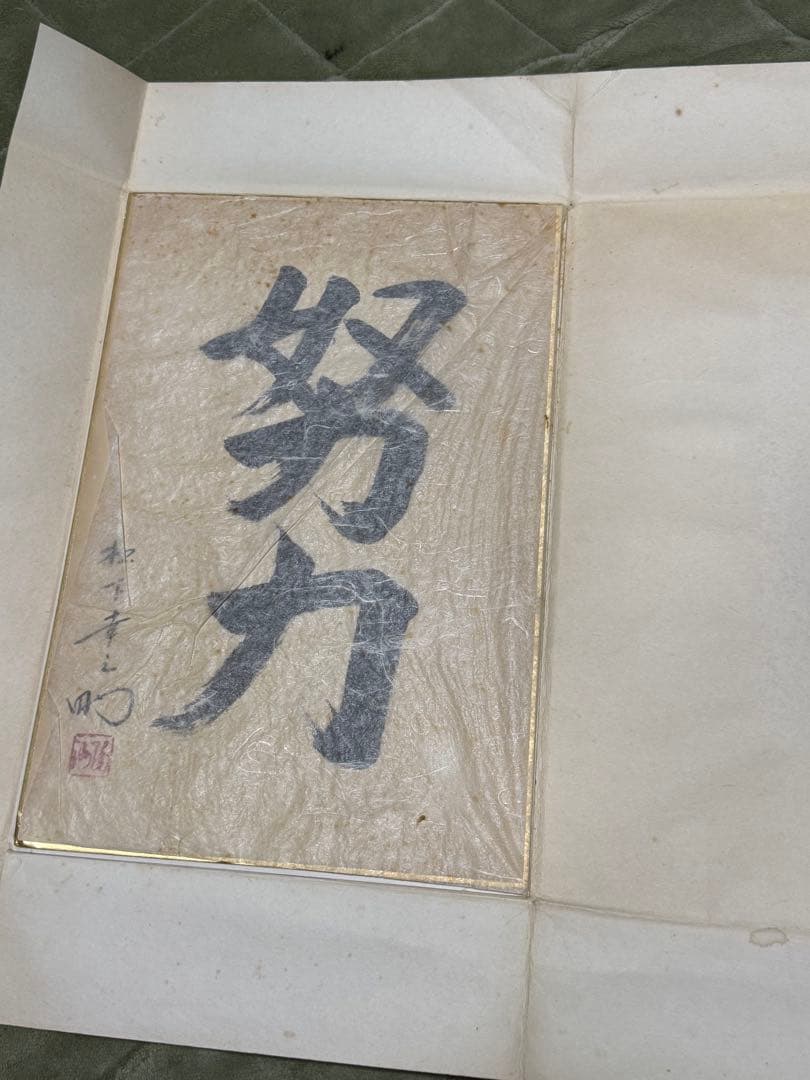 努力
松下幸之助